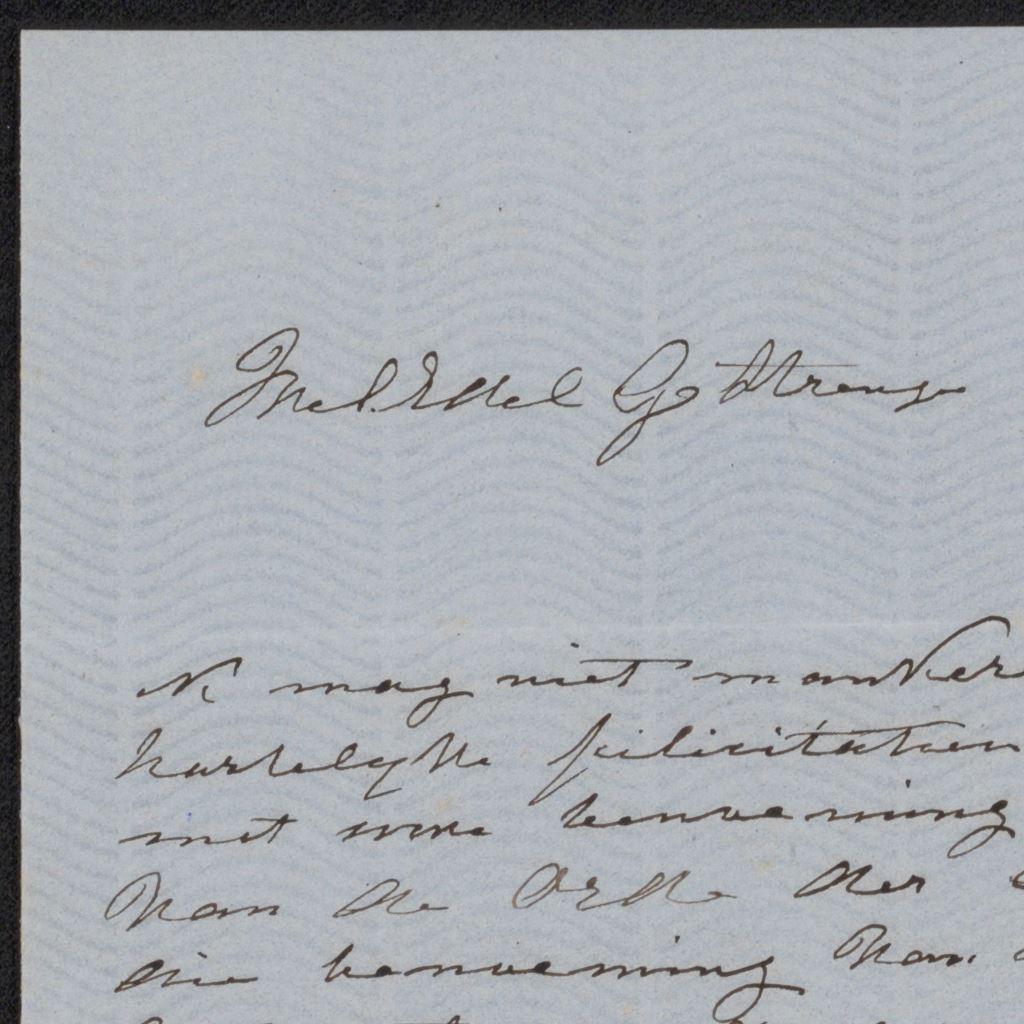 Wel.Edel Gestrenge
Ik mag niet manker
hartelyke felicitatien
met uwe benoeming
van de Orde der
die benoeming van